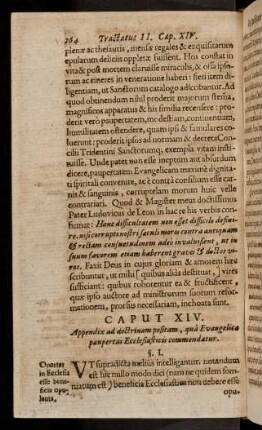 264 Tractatus II. Cap. XIV.
plenæ ac thesauris, mensæ regales & exquisitarum
epularum deliciis oppletæ fuissent. Hos constat in
vita & post mortem claruisse miraculis, & ossa ipso-
rum ac cineres in veneratione haberi: fieri item di-
ligentiam, ut Sanctorum catalogo adscribantur. Ad
quod obtinendum nihil proderit majorum stemma,
magnificus apparatus & his similia recensere: pro-
derit verò paupertatem, modestiam, continentiam,
humilitatem ostendere, quam ipsi & famulares co-
luerunt: proderit ipsos ad normam & decreta Conci-
lii Tridentini Sanctiorumq; exempla vitam insti-
tuisse. Unde patet non esse ineptum aut absurdum
dicere, paupertatem Evangelicam maximè dignita-
ti spiritali convenire, ac è contrà consilium esse car-
nis & sanguinis, corruptelam morum huic velle
contrariari. Quod & Magister meus doctissimus
Pater Ludovicus de Leon in hac re his verbis con-
firmat: Hanc difficultatem non esset difficile disso-
vere, nisi corrupti nostri sæculi mores contra antiquam
& rectam consuetudinem adeo invaluissent, ut in
suum favorem etiam haberent graves & doctos vi-
ros. Faxit Deus in cujus gloriam & amorem hæc
scribuntur, ut nihil (quibus alia destituat,) vires
sufficiant: quibus roborentur ea & fructificent,
quæ ipso auctore ad ministrorum suorum refor-
mationem, prorsus necessariam, inchoata sunt.
CAPUT XIV.
Appendix ad doctrinam positam, quâ Evangelica
paupertas Ecclesiasticis commendatur.
§. I.
in Ecclesia
esse bene-
UT supradicta melius intelligantur, notandum
est hîc nullo modo dici (nam ne quidem som-
niatum est) beneficia Ecclesiastica non debere esse
opu-